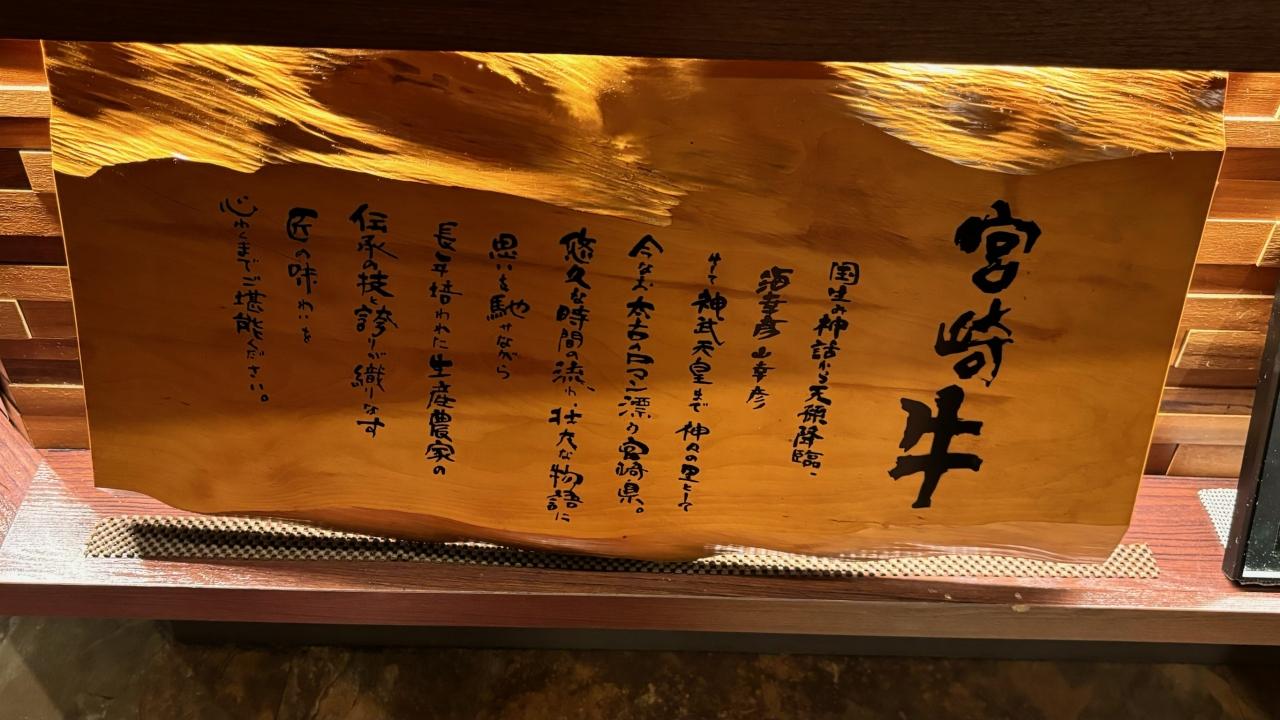 宮崎牛
国生み神話から天孫降臨、
海幸彦 山幸彦
そして神武天皇まで 神々の里として
今なお太古のロマン漂う宮崎県。
悠久な時間の流れ、壮大な物語に
思いを馳せながら
長年培われた生産農家の
伝承の技と誇りが織りなす
匠の味わいを
心ゆくまでご堪能ください。